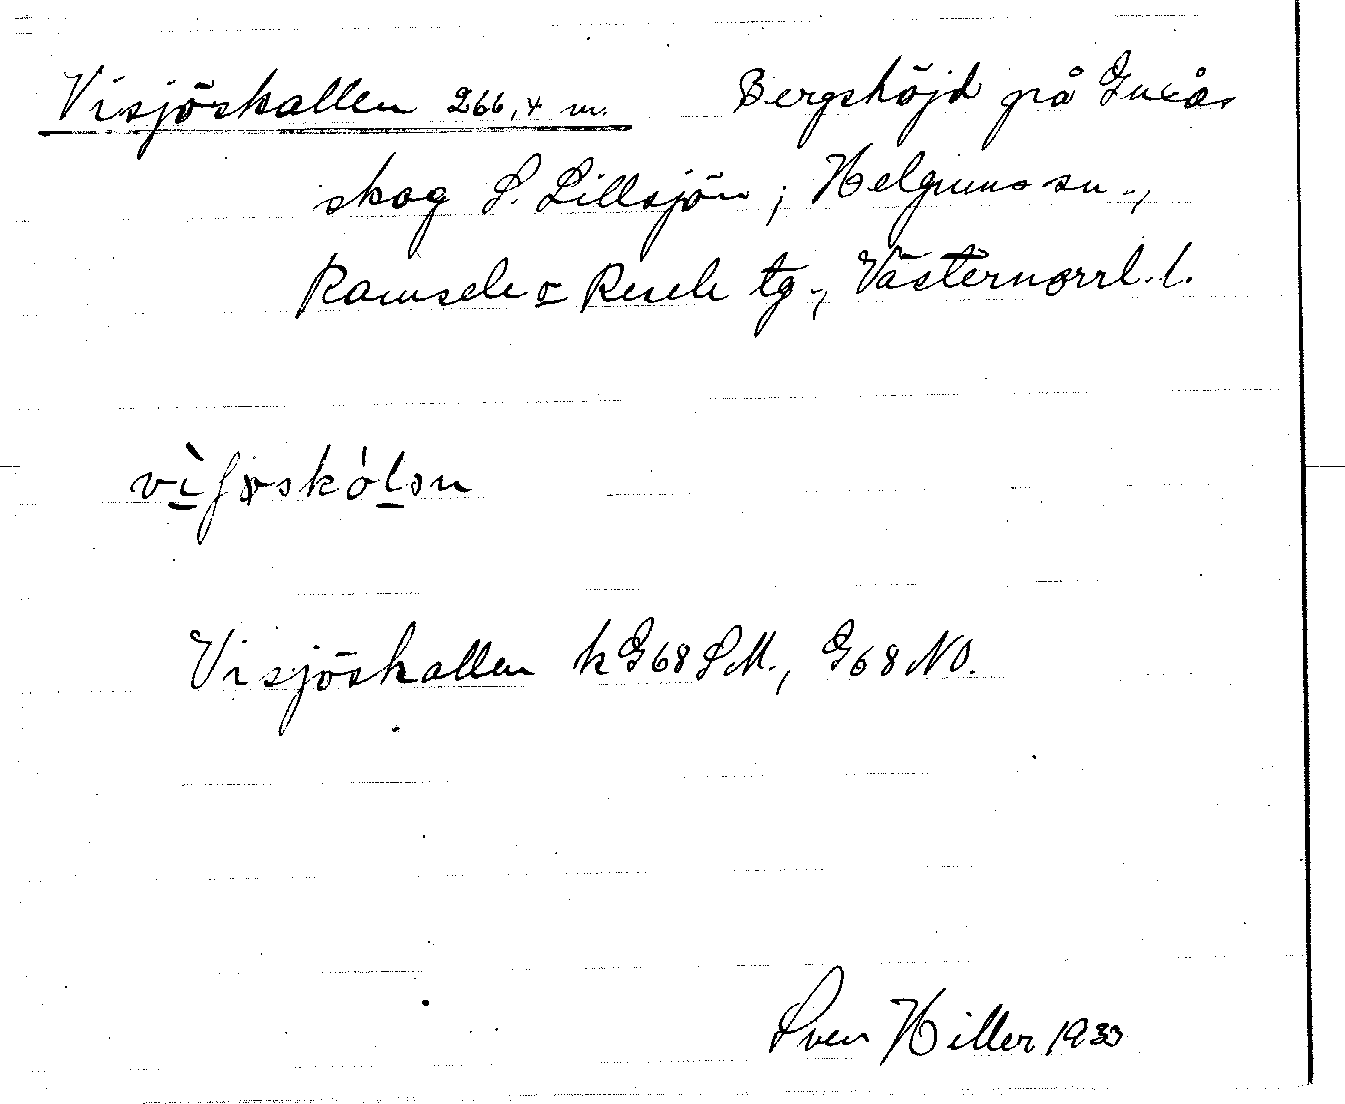 Visjöskallen 266,4 m. Bergshöjd på Guxås
skog S. Lillsjön; Helgums sn.,
Ramsele o Resele tg., Västernorrl. l.
Visjöskallen k G68 SM., G68 NO.
Sven Hiller 1933